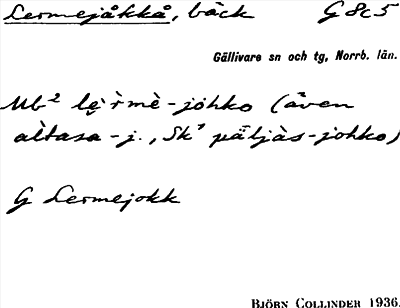 Lermejåkkå, bäck G 8c5
Gällivare sn och tg, Norrb. län.
Ub² lẹ̀rmè-jòhko (även
altasa-j., Sk¹ päljàs-johko)
G Lermejokk
BJÖRN COLLINDER 1936.